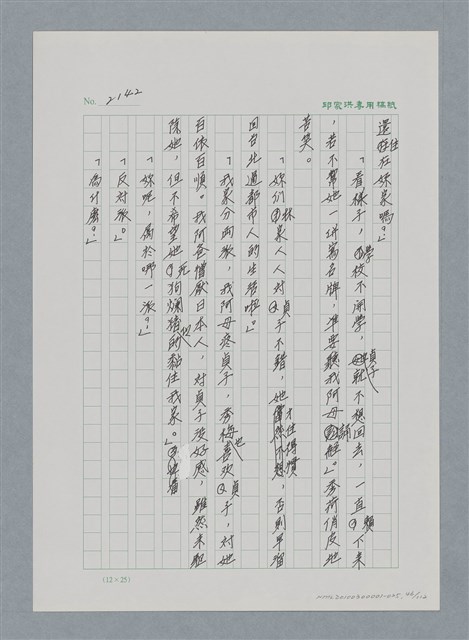 No. 2142
邱家洪專用稿紙
還住在妳家嗎?」
「看樣子,學校不開學,貞子就不想回去,一直賴下來
,若不幫她一併寫名牌,準要聽我阿母訓經。」秀荷俏皮地
苦笑。
「妳們林家人人對貞子不錯,她才住得慣,否則早溜
回台北過都市人的生活啦。」
「我家分兩派,我阿母疼貞子,秀梅也喜歡貞子,對她
百依百順。我阿爸憎厭日本人,對貞子沒好感,雖然未驅
除她,但不希望她死狗爛豬似的黏住我家。」
「妳呢,屬於哪一派?」
「反對派。」
「為什麼?」
(12×25)